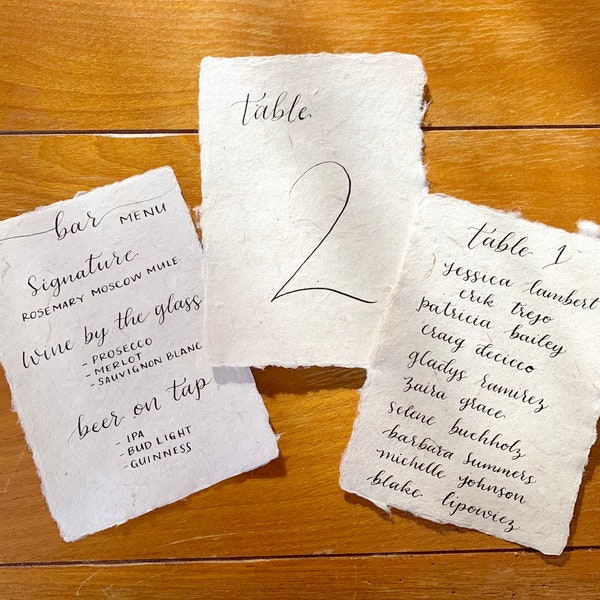 bar MENU
Signature
ROSEMARY MOSCOW MULE
Wine by the glass
- PROSECCO
- MERLOT
- SAUVIGNON BLANC
beer on tap
- IPA
- BUD LIGHT
- GUINNESS
table
2
table 1
jessica lambert
erik trejo
patricia bailey
craig decicco
gladys ramirez
zaira grace
selene buchholz
barbara summers
michelle johnson
blake lipowicz